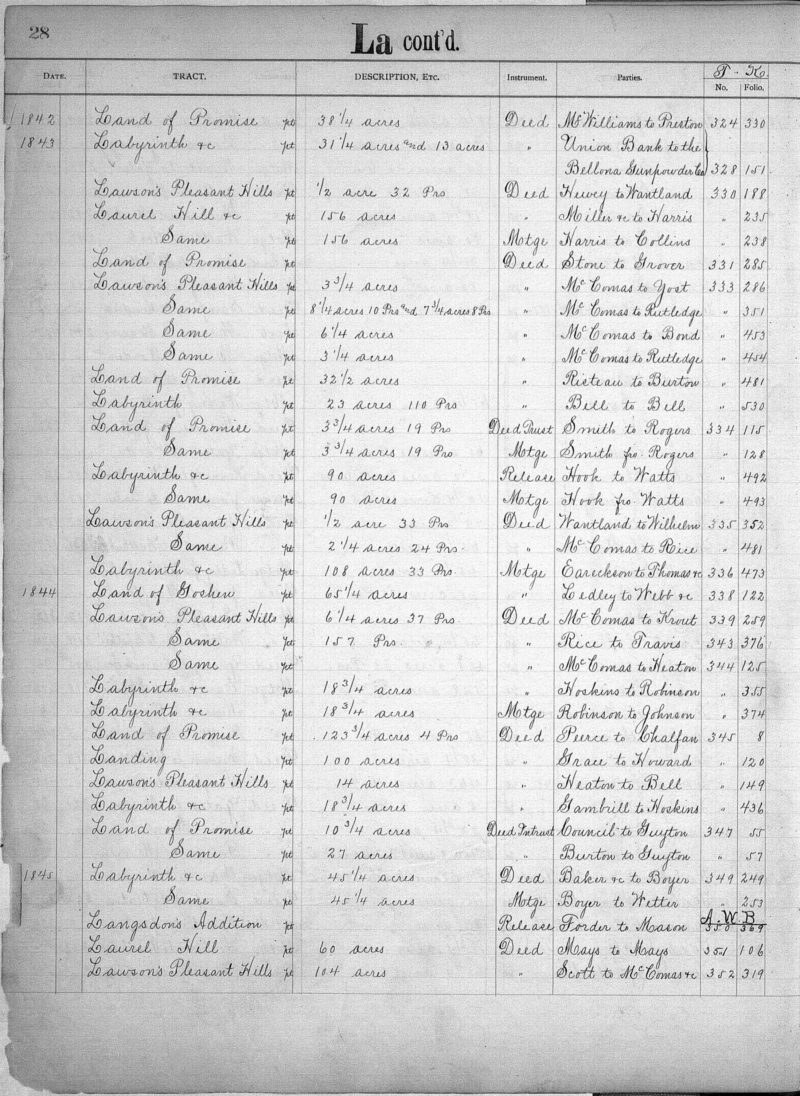 28
La cont'd.
DATE. TRACT. DESCRIPTION, ETC. Instrument. Parties. T. K. No. Folio.
1842 Land of Promise pt 38 1/4 acres Deed McWilliams to Preston 324 330
1843 Labyrinth &c pt 31 1/4 acres and 13 acres " Union Bank to the
Bellona Gunpowder Co 328 151
Lawson's Pleasant Hills pt 1/2 acre 32 Prs Deed Hewey to Wantland 330 188
Laurel Hill &c pt 156 acres " Miller &c to Harris " 235
Same pt 156 acres Mtge Harris to Collins " 238
Land of Promise pt Deed Stone to Grover 331 285
Lawson's Pleasant Hills pt 3 3/4 acres " McComas to Yost 333 286
Same pt 8 1/4 acres 10 Prs and 7 3/4 acres 8 Prs " McComas to Rutledge " 351
Same pt 6 1/4 acres " McComas to Bond " 453
Same pt 3 1/4 acres " McComas to Rutledge " 454
Land of Promise pt 32 1/2 acres " Risteau to Burton " 481
Labyrinth pt 23 acres 110 Prs " Bell to Bell " 530
Land of Promise pt 3 3/4 acres 19 Prs Deed Trust Smith to Rogers 334 115
Same pt 3 3/4 acres 19 Prs Mtge Smith fro Rogers " 128
Labyrinth &c pt 90 acres Release Hook to Watts " 492
Same pt 90 acres Mtge Hook fro Watts " 493
Lawson's Pleasant Hills pt 1/2 acre 33 Prs Deed Wantland to Wilhelm 335 352
Same pt 2 1/4 acres 24 Prs. " McComas to Rice " 481
Labyrinth &c pt 108 acres 33 Prs. Mtge Eareckson to Thomas &c 336 473
1844 Land of Goshen pt 65 1/4 acres " Ledley to Webb &c 338 122
Lawson's Pleasant Hills pt 6 1/4 acres 37 Prs Deed McComas to Krout 339 259
Same pt 157 Prs. " Rice to Travis 343 376
Same pt " McComas to Heaton 344 125
Labyrinth &c pt 18 3/4 acres " Hoskins to Robinson " 355
Labyrinth &c pt 18 3/4 acres Mtge Robinson to Johnson " 374
Land of Promise pt 123 3/4 acres 4 Prs Deed Peerce to Chalfan 345 8
Landing pt 100 acres " Grace to Howard " 120
Lawson's Pleasant Hills pt 14 acres " Heaton to Bell " 149
Labyrinth &c pt 18 3/4 acres " Gambrill to Hoskins " 436
Land of Promise pt 10 3/4 acres Deed Intrust Council to Guyton 347 55
Same pt 27 acres " Burton to Guyton " 57
1845 Labyrinth &c pt 45 1/4 acres Deed Baker &c to Boyer 349 249
Same pt 45 1/4 acres Mtge Boyer to Wetter " 253
A. W. B.
Langsdon's Addition pt Release Forder to Mason 350 369
Laurel Hill pt 60 acres Deed Mays to Mays 351 106
Lawson's Pleasant Hills pt 104 acres " Scott to McComas &c 352 319